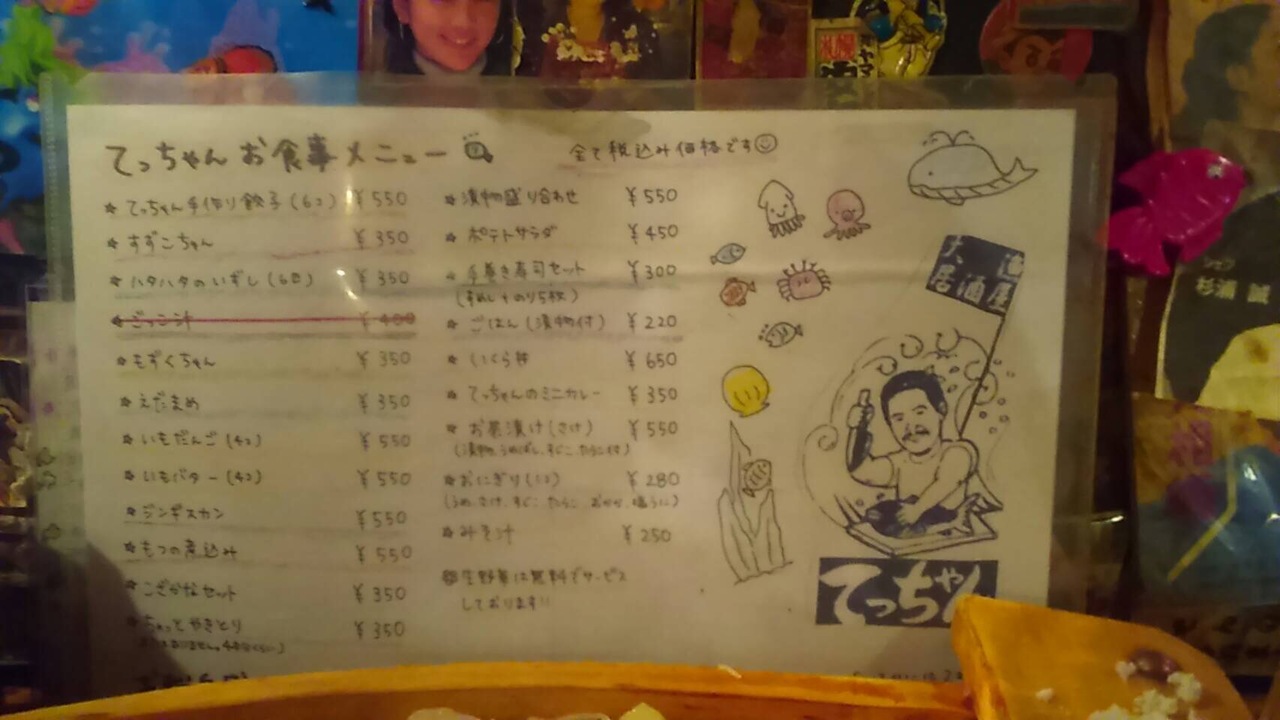 てっちゃん お食事メニュー
全て税込み価格です
☆ てっちゃん手作り餃子(6コ) ¥550
☆ すずこちゃん ¥350
☆ ハタハタのいずし(6切) ¥350
☆ ごっこ汁 ¥400
☆ もずくちゃん ¥350
☆ えだまめ ¥350
☆ いもだんご(4コ) ¥550
☆ いもバター(4コ) ¥550
☆ ジンギスカン ¥550
☆ もつの煮込み ¥550
☆ こざかなセット ¥350
☆ ちゃっとやきとり ¥350
☆ 漬物盛り合わせ ¥550
☆ ポテトサラダ ¥450
☆ 手巻き寿司セット ¥300
(すめし+のり5枚)
☆ ごはん(漬物付) ¥220
☆ いくら丼 ¥650
☆ てっちゃんのミニカレー ¥350
☆ お茶漬け(さけ) ¥550
(漬物、うめぼし、すじこ、たらこ付)
☆ おにぎり(1コ) ¥280
(うめ、さけ、すじこ、たらこ、おかか、塩うに)
☆ みそ汁 ¥250
生野菜は無料でサービス
しております!!
大漁
居酒屋
てっちゃん
杉浦 誠